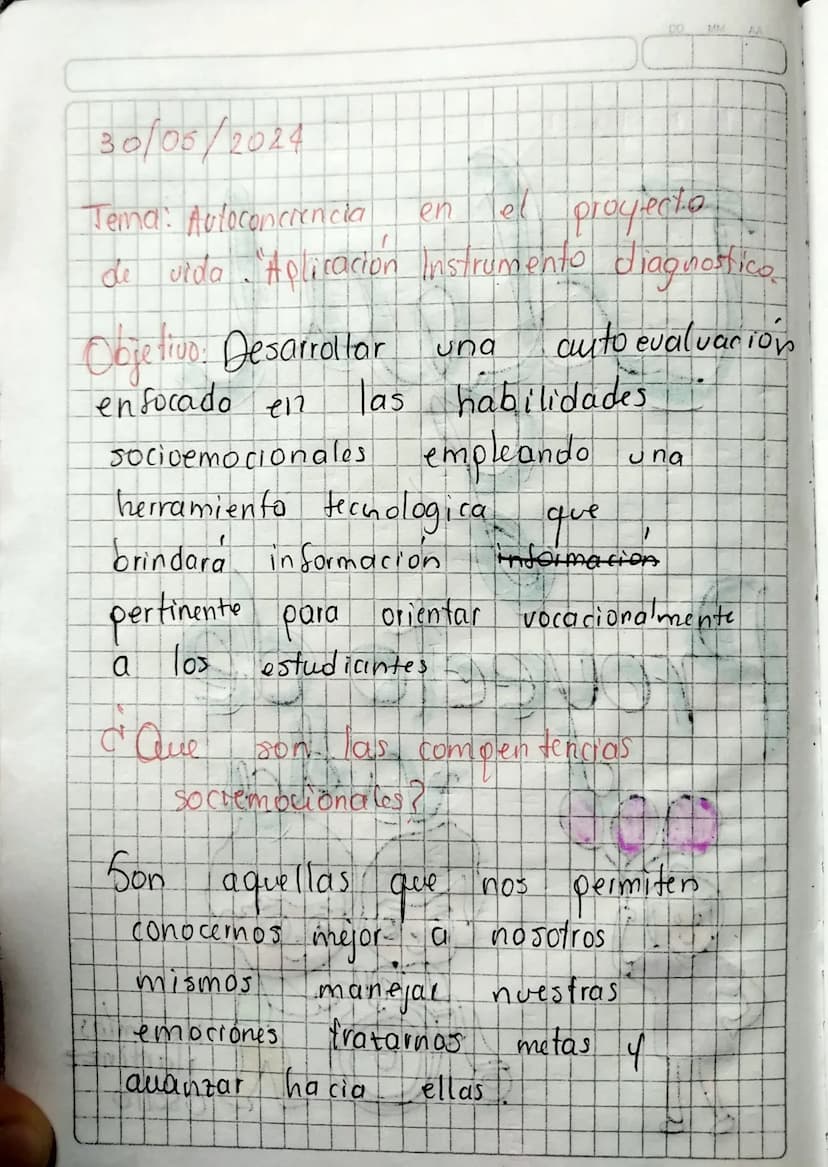 DD MM AA
30/05/2024
Tema: Autoconciencia en el proyecto
de vida. "Aplicación Instrumento diagnostico.
Objetivo: Desarrollar una autoevaluación
enfocado en las habilidades
socioemocionales empleando una
herramienta tecnologica que
brindará información información
pertinente para orientar vocacionalmente
a los estudiantes
¿Que son las compentencias
socioemocionales?
Son aquellas que nos permiten
conocernos mejor a nosotros
mismos manejar nuestras
emociones tratarnas metas y
avanzar hacia ellas.